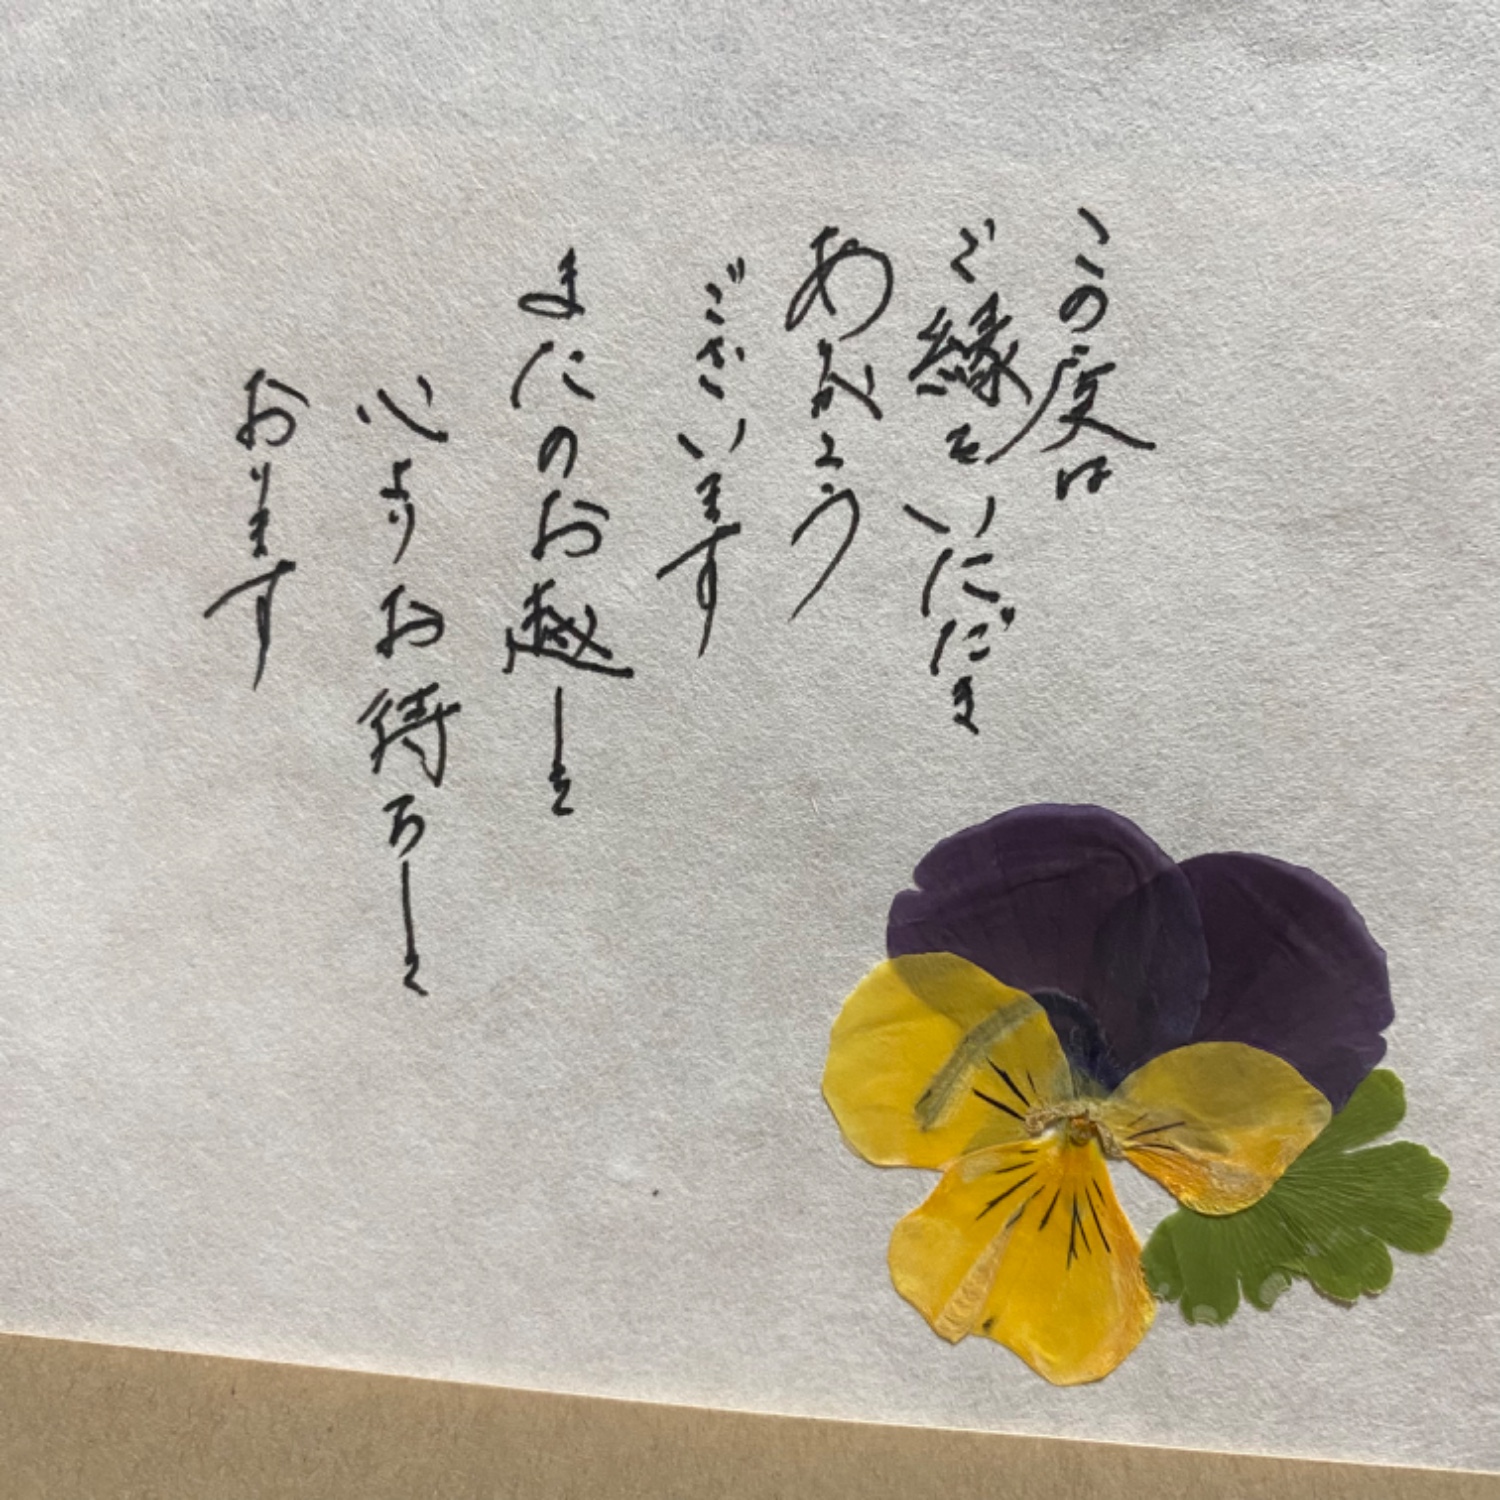 この度は
ご縁をいただき
ありがとう
ございます
またのお越しを
心よりお待ちして
おります